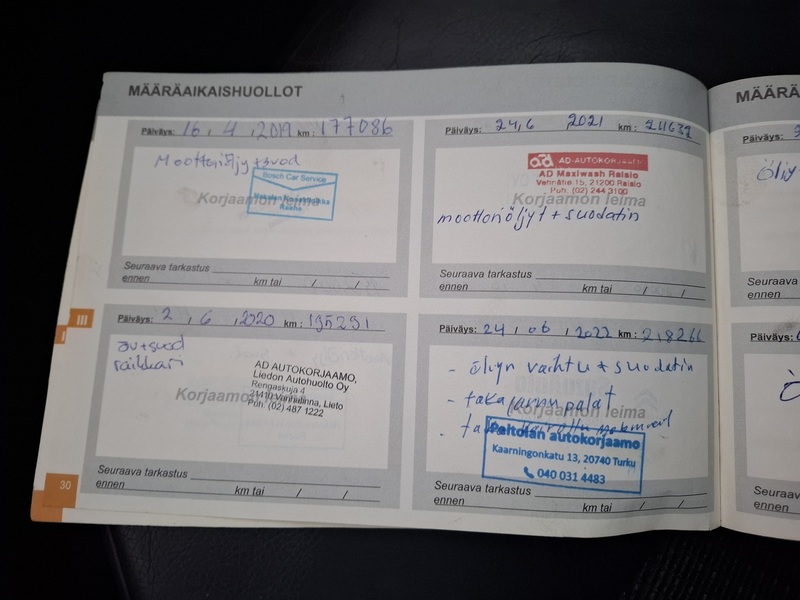 MÄÄRÄAIKAISHUOLLOT
Päiväys: 16 . 4 . 2019 km: 177086
Moottoriöljy + suod
Bosch Car Service
Raahe
Korjaamon leima
Seuraava tarkastus
ennen km tai / /
Päiväys: 24,6 2021 km:
ad AD-AUTOKORJAAMO
AD Maxiwash Raisio
Vehnätie 15, 21200 Raisio
Puh. (02) 244 3100
Korjaamon leima
moottoriöljyt + suodatin
Seuraava tarkastus
ennen km tai / /
Päiväys: 2 , 6 , 2020 km: 195291
öv+suod
raikkari
AD AUTOKORJAAMO,
Liedon Autohuolto Oy
Rengaskuja 4
21410 Vanhalinna, Lieto
Puh. (02) 487 1222
Korjaamon leima
Seuraava tarkastus
ennen km tai / /
Päiväys: 24 , 06 , 2022 km:
- öljyn vaihtu + suodatin
- takajarrupalat
Korjaamon leima
Peltolan autokorjaamo
Kaarningonkatu 13, 20740 Turku
040 031 4483
Seuraava tarkastus
ennen km tai / /
III
30
MÄÄRÄ